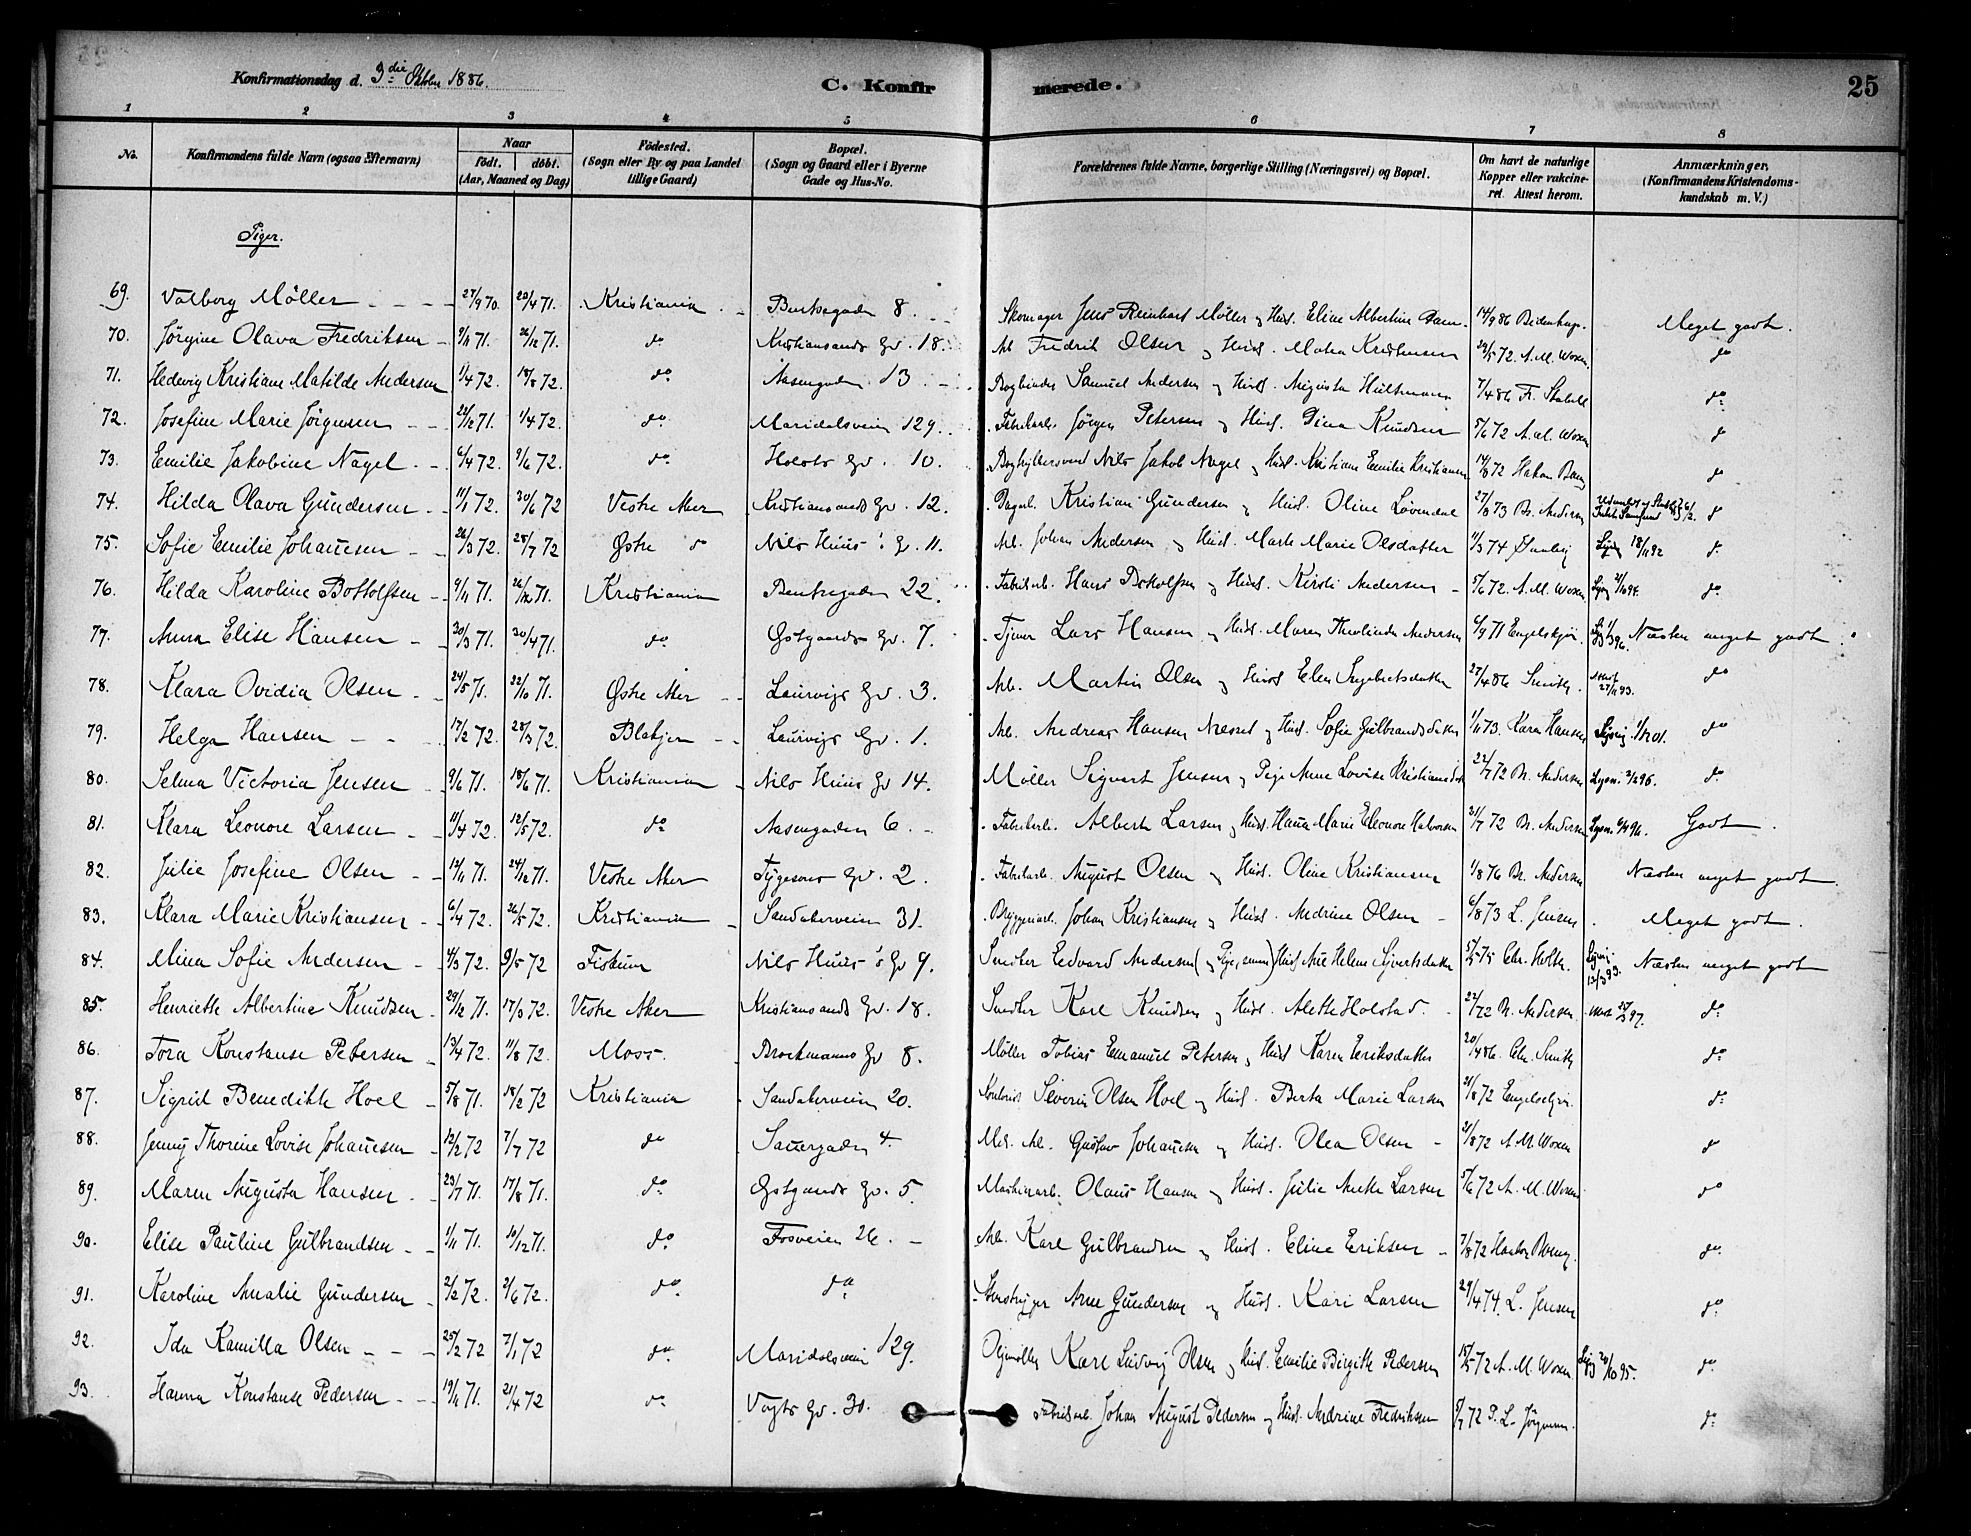 Konfirmationsdag d. 3die Oktober 1886. C. Konfirmerede. 25
1 2 3 4 5 6 7 8
No. Konfirmandens fulde Navn (ogsaa Efternavn) Naar födt. döbt. (Aar, Maaned og Dag) Födested. (Sogn eller By og paa Landet tillige Gaard) Bopæl. (Sogn og Gaard eller i Byerne Gade og Hus-No. Forældrenes fulde Navne, borgerlige Stilling (Næringsvei) og Bopæl. Om havt de naturlige Kopper eller vakcineret. Attest herom. Anmærkninger, (Konfirmandens Kristendomskundskab m. V.)
Piger.
69. Valborg Möller 27/9 70. 20/4 71. Kristiania Bentsegaden 8. Skomager Jens Reinhart Möller og Hust. Eline Albertine Dam 14/9 86 Meget godt.
70. Jörgine Olava Fredriksen 9/11 71. 26/12 71. do Kristiansands Gd. 18. Arb. Fredrik Olsen og Hust. Maten Kristensen 29/5 72. A. M. Woxen do
71. Hedevig Kristiane Matilde Andersen 1/4 72. 18/8 72. do Aasengaden 13 Bogbinder Samuel Andersen og Hust. Augusta Hultmann 7/4 86 Fr. Stabell do
72. Josefine Marie Jörgensen 22/12 71. 1/4 72. do Maridalsveien 129. Fabrikarb. Jörgen Petersen og Hust. Dina Knudsen 5/6 72 A. M. Woxen do
73. Emilie Jakobine Nagel 6/4 72. 9/6 72. do Holsts Gd. 10. Nils Jakob Nagel og Hust. Kristiane Emilie Kristiansen 14/8 72 Hakon Bang do
74. Hilda Olava Gundersen 11/1 72. 30/6 72 Vestre Aker Kristiansands Gd. 12. Dagarb. Kristian Gundersen og Hust. Oline Lövendal 27/8 73 Br. Andersen do
75. Sofie Emilie Johansen 26/3 72. 28/7 72 Östre do Nils Huus's G. 11. Arb. Johan Andersen og Hust. Marte Marie Olsdatter 11/3 74 18/11 92 do
76. Hilda Karoline Bottolfsen 9/11 71. 26/12 71. Kristiania Bentsegaden 22. Fabrikarb. Hans Bottolfsen og Hust. Kirsti Andersen 5/6 72. A. M. Woxen do
77. Anna Elise Hansen 30/3 71. 30/4 71. do Östgaards Gd. 7. Tjener Lars Hansen og Hust. Maren Theolinda Andersen 6/9 71 Engelskjön Næsten meget godt
78. Klara Ovidia Olsen 24/5 71. 22/10 71. Östre Aker Laurvigs Gd. 3. Arb. Martin Olsen og Hust. Elen Ingebretsdatter 27/4 86 Smith. 27/11 93. do
79. Helga Hansen 17/2 72. 28/3 72. Blakjer Laurvigs Gd. 1. Arb. Andreas Hansen Næsset og Hust. Sofie Gulbrandsdatter 1/11 73. Karen Hansen do
80. Selma Victoria Jensen 9/6 71. 18/6 71. Kristiania Nils Huus Gd 14. Möller Sigvart Jensen og Pige Anne Lovise Kristiansdatter 22/7 72 Br. Andersen do
81. Klara Leonore Larsen 11/4 72. 12/5 72. do Aasengaden 6. Fabrikarb. Albert Larsen og Hust. Hanna Marie Eleonore Halvorsen 31/7 72 Br. Andersen Godt.
82. Julie Josefine Olsen 12/11 71. 24/12 71. Vestre Aker Tygesons Gd. 2. Fabrikarb. August Olsen og Hust. Oline Kristiansen 1/8 76 Br. Andersen Næsten meget godt.
83. Klara Marie Kristiansen 6/4 72. 26/5 72. Kristiania Sandakerveien 31. Bryggeriarb. Johan Kristiansen og Hust. Andrine Olsen 6/8 73 L. Jensen Meget godt.
84. Mina Sofie Andersen 4/3 72. 9/5 72 Fiskum Nils Huus's Gd 9. Snedker Edvard Andersen Hust. Ane Helene Sivertsdatter 5/5 75 Chr. Holth. 12/3 93. Næsten meget godt
85. Henriette Albertine Knudsen 29/12 71. 17/3 72. Vestre Aker Kristiansands Gd. 18. Snedker Karl Knudsen og Hust. Alette Holstad. Br. Andersen do
86. Tora Konstanse Petersen 13/4 72. 11/8 72. Moss. Brockmanns Gd 8. Möller Tobias Emanuel Petersen og Hust Karen Eriksdatter 20/4 86. Chr. Smith do
87. Sigrid Benedikte Hoel 5/8 71. 18/2 72 Kristiania Sandakerveien 20. Kontorist Severin Olsen Hoel og Hust. Berta Marie Larsen 21/8 72 Engelskjön do
88. Jenny Thorine Lovise Johansen 12/2 72 7/7 72 do Sauergaden 4. Gustav Johansen og Hust. Olea Olsen 21/8 72 A. M. Woxen do
89. Maren Augusta Hansen 23/7 71. 17/8 71. do Östgaards Gd. 5. Maskinarb. Olaus Hansen og Hust. Julie Anette Larsen 5/6 72 A. M. Woxen do
90. Elise Pauline Gulbrandsen 1/11 71. 10/12 71. do Fosveien 26. Arb. Karl Gulbrandsen og Hust. Eline Eriksen 7/8 72 do
91. Karoline Amalie Gundersen 2/2 72. 2/6 72. do do Stenhugger Arne Gundersen og Hust. Kari Larsen 29/4 74. L. Jensen do
92. Ida Kamilla Olsen 25/2 72 7/1 72 do Maridalsveien 129. Oljemöller Karl Ludvig Olsen og Hust. Emilie Birgitte Pedersen 15/5 72 A. M. Woxen 20/10 95. do
93. Hanna Konstanse Pedersen 19/11 71. 21/4 72 do Vogts Gd. 30. Fabrikarb. Johan August Pedersen og Hust. Andrine Fredriksen 8/7 72 P. L. Jörgensen. do